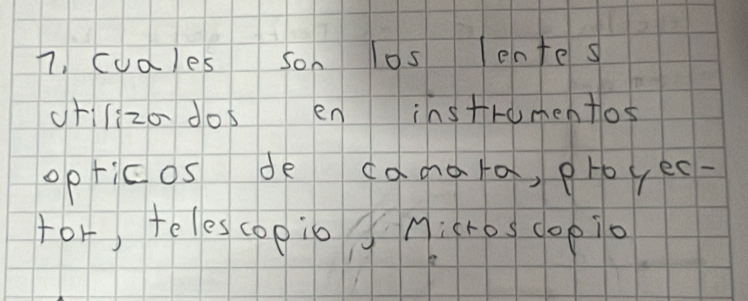 7. Cuales son los lentes
utilizados en instrumentos
opticos de camara, proyec-
tor, telescopio y Microscopio